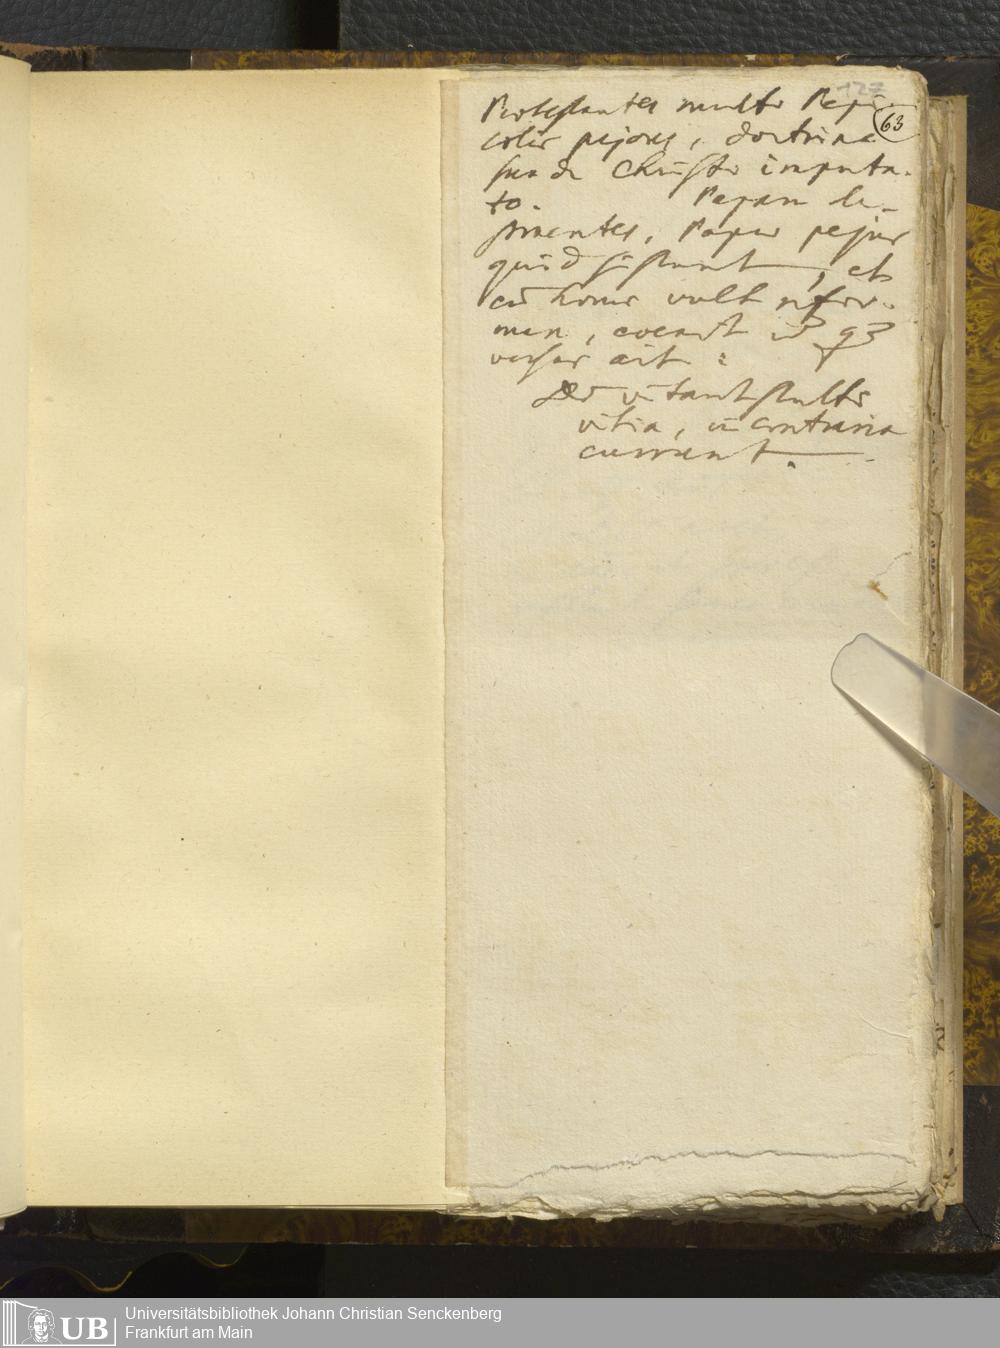 127
63
Protestantes multo Papi-
colis pejores, doctrina
sua de Christo imputa-
to. Papam de-
struentes, Papa pejus
quid sistunt, et
cū homo vult refor-
mari,
versus ait:
Dū vitant stulti
vitia, in contraria
currunt.
UB Universitätsbibliothek Johann Christian Senckenberg
Frankfurt am Main